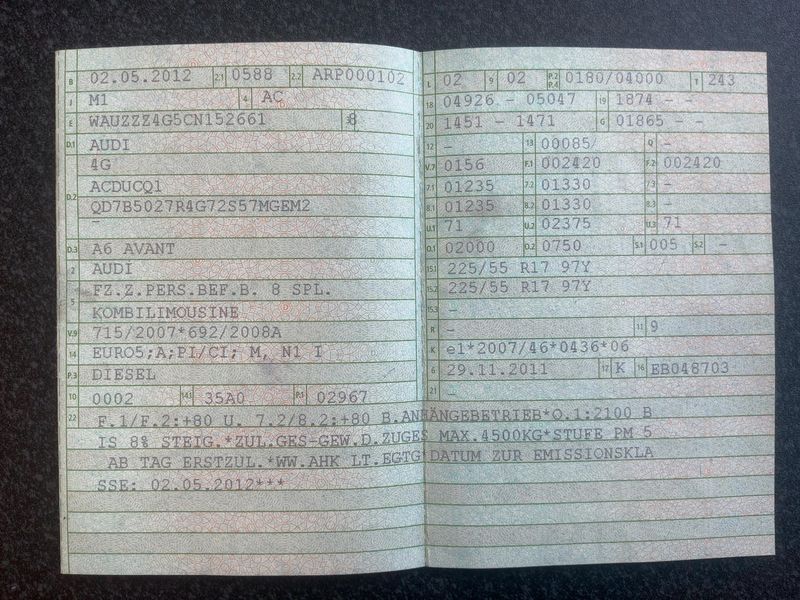 B 02.05.2012 2.1 0588 2.2 ARP000102
J M1 4 AC
E WAUZZZ4G5CN152661 3 8
D.1 AUDI
4G
D.2 ACDUCQ1
QD7B5027R4G72S57MGEM2
-
D.3 A6 AVANT
2 AUDI
5 FZ.Z.PERS.BEF.B. 8 SPL.
KOMBILIMOUSINE
V.9 715/2007*692/2008A
14 EURO5;A;PI/CI; M, N1 I
P.3 DIESEL
10 0002 14.1 35A0 P.1 02967
L 02 9 02 P.2 P.4 0180/04000 T 243
18 04926 - 05047 19 1874 - -
20 1451 - 1471 G 01865 - -
12 - 13 00085/ Q -
V.7 0156 F.1 002420 F.2 002420
7.1 01235 7.2 01330 7.3 -
8.1 01235 8.2 01330 8.3 -
U.1 71 U.2 02375 U.3 71
O.1 02000 O.2 0750 S.1 005 S.2 -
15.1 225/55 R17 97Y
15.2 225/55 R17 97Y
15.3 -
R - 11 9
K e1*2007/46*0436*06
6 29.11.2011 17 K 16 EB048703
21 -
22 F.1/F.2:+80 U. 7.2/8.2:+80 B.ANHÄNGEBETRIEB*O.1:2100 B
IS 8% STEIG.*ZUL.GES-GEW.D.ZUGES MAX.4500KG*STUFE PM 5
AB TAG ERSTZUL.*WW.AHK LT.EGTG*DATUM ZUR EMISSIONSKLA
SSE: 02.05.2012***